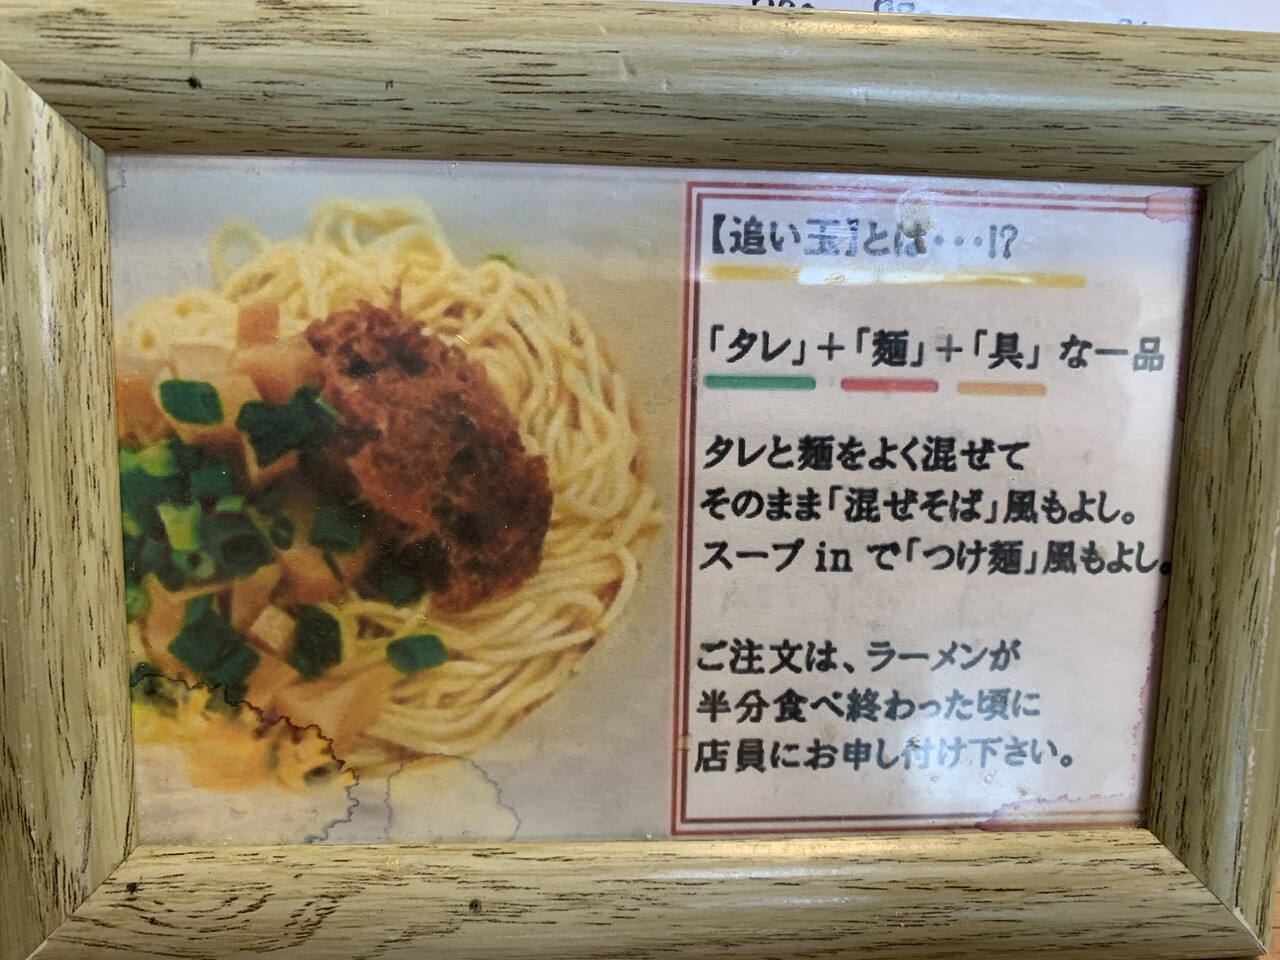 【追い玉】とは・・・!?
「タレ」＋「麺」＋「具」な一品
タレと麺をよく混ぜて
そのまま「混ぜそば」風もよし。
スープ in で「つけ麺」風もよし。
ご注文は、ラーメンが
半分食べ終わった頃に
店員にお申し付け下さい。